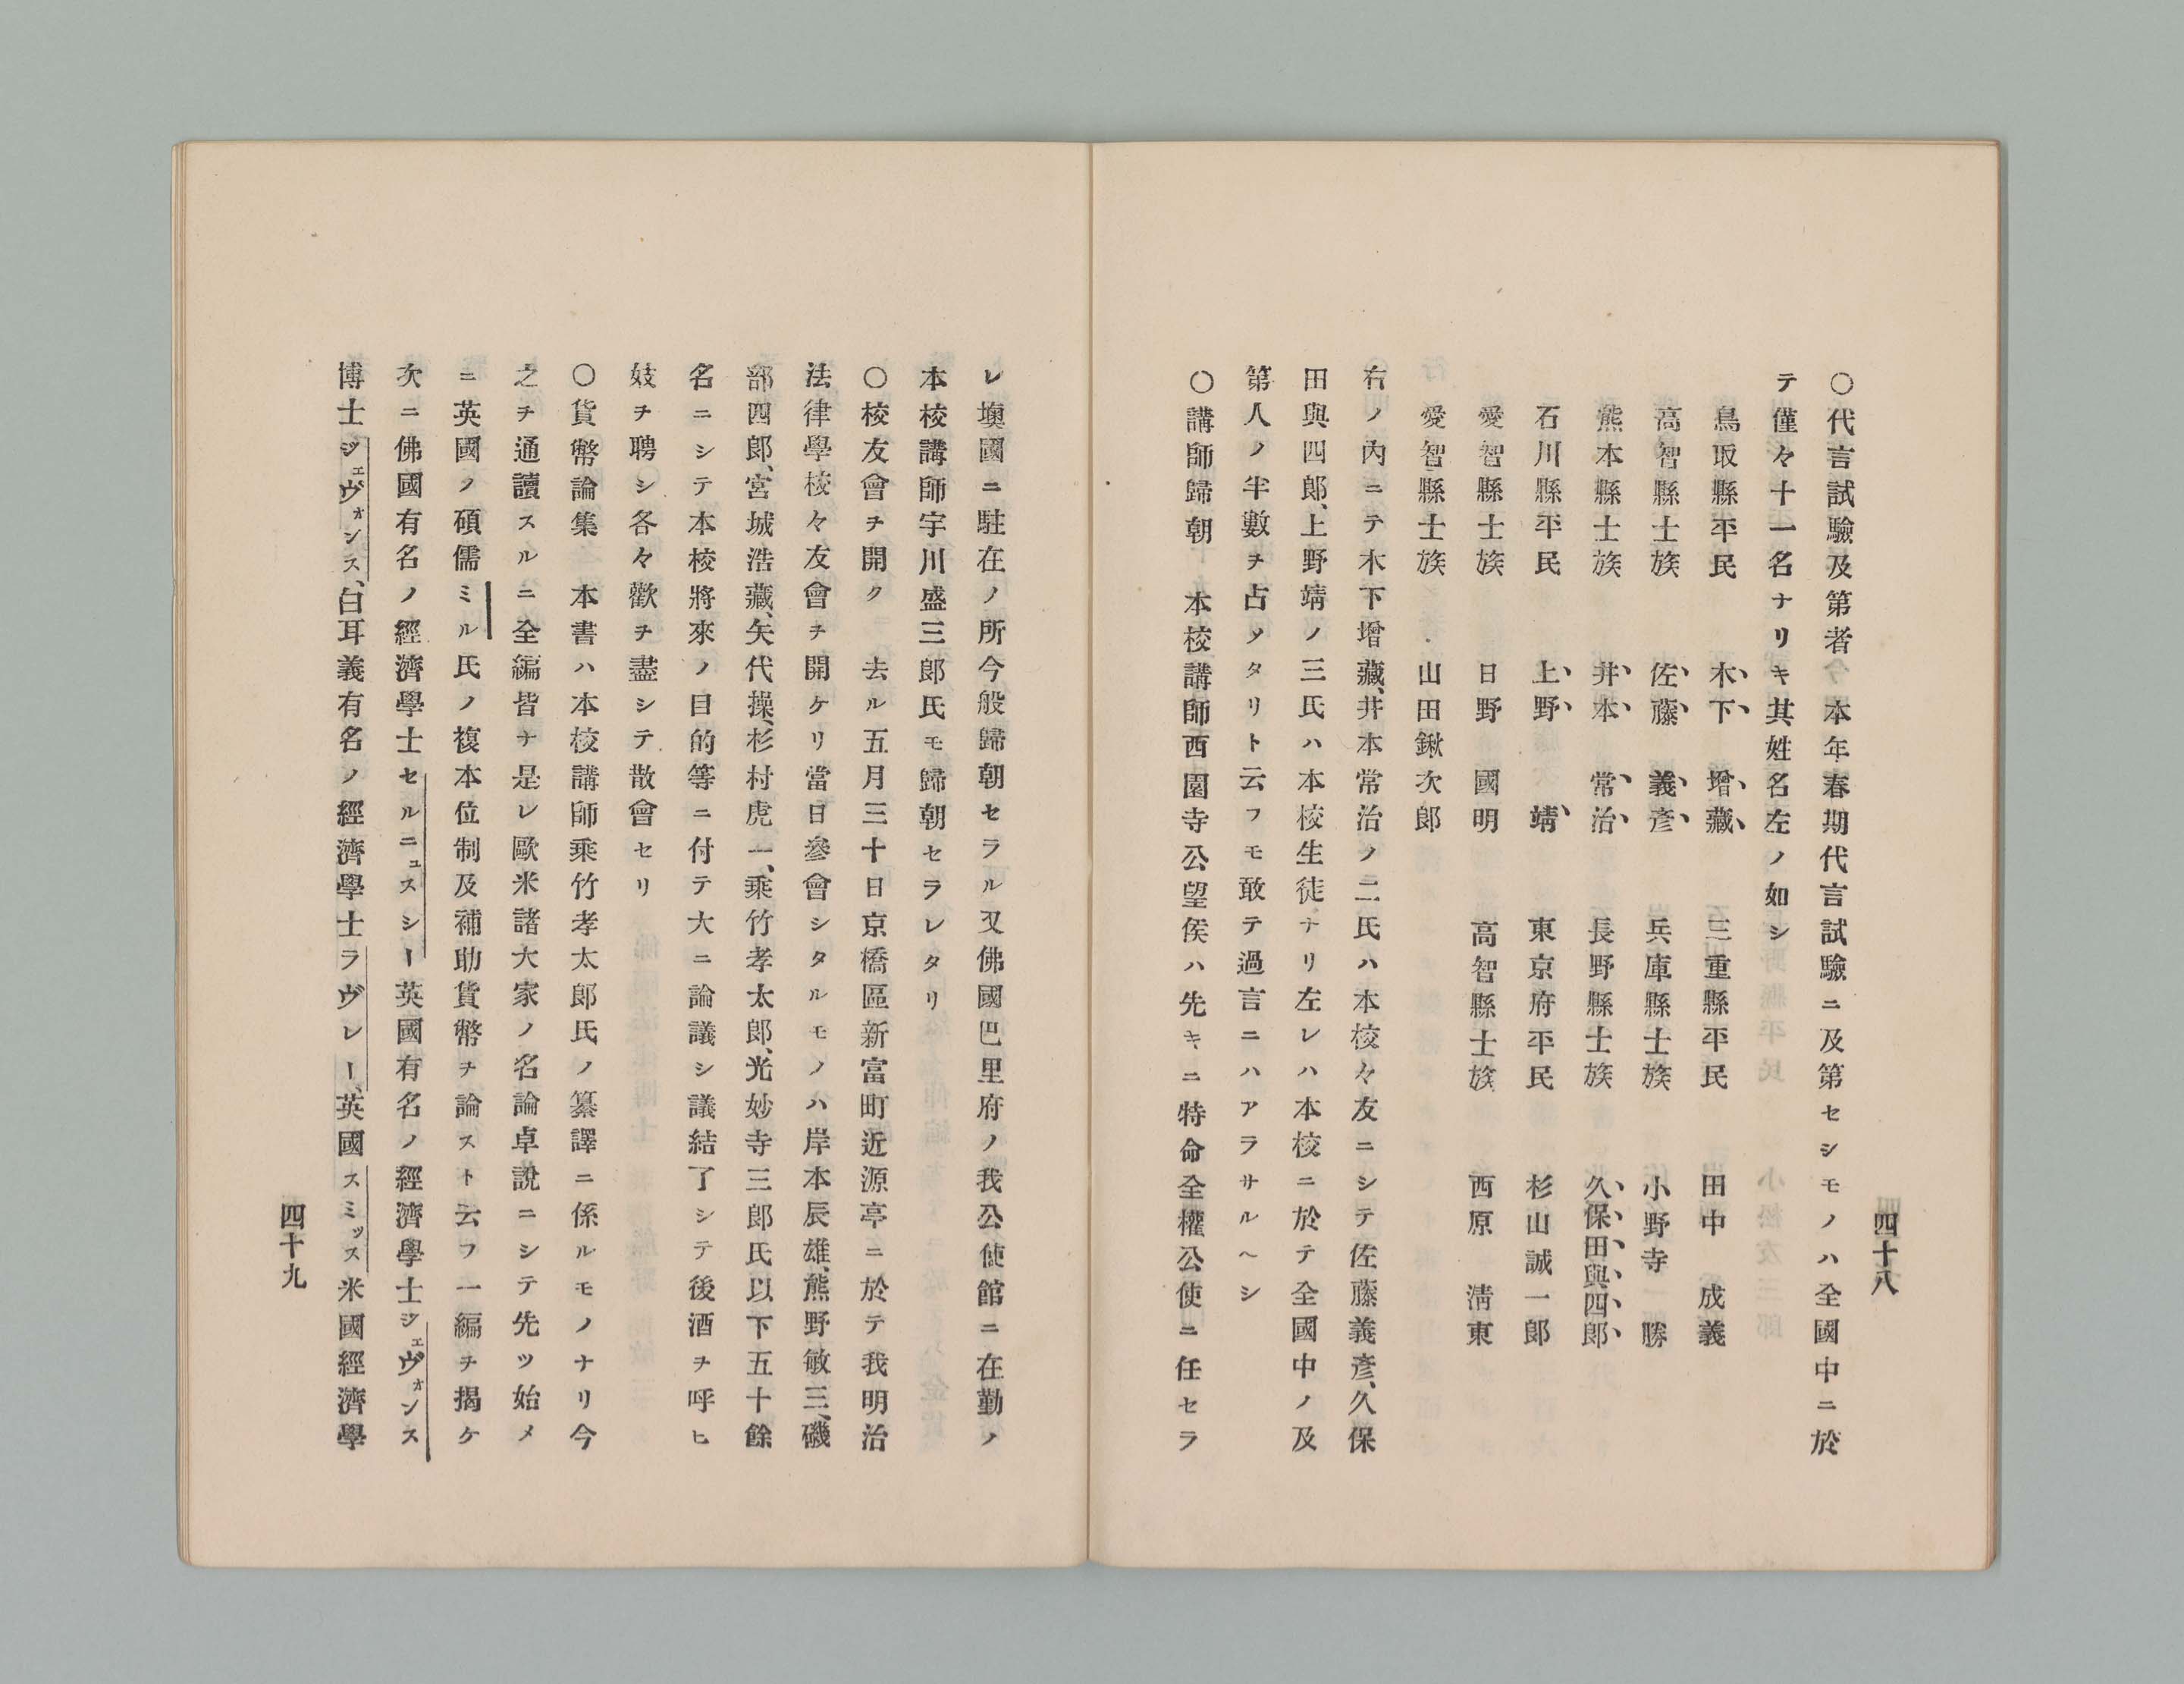 四十八
○代言試驗及第者 本年春期代言試驗ニ及第セシモノハ全國中ニ於
テ僅々十一名ナリキ其姓名左ノ如シ
鳥取縣平民 木下増藏 三重縣平民 田中成義
高智縣士族 佐藤義彦 兵庫縣士族 小野寺一勝
熊本縣士族 井本常治 長野縣士族 久保田與四郎
石川縣平民 上野靖 東京府平民 杉山誠一郎
愛智縣士族 日野國明 高智縣士族 西原淸東
愛智縣士族 山田鍬次郎
右ノ内ニテ木下增藏、井本常治ノ二氏ハ本校々友ニシテ佐藤義彦、久保
田與四郎、上野靖ノ三氏ハ本校生徒ナリ左レハ本校ニ於テ全國中ノ及
第人ノ半數ヲ占メタリト云フモ敢テ過言ニハアラサルヘシ
○講師歸朝 本校講師西園寺公望侯ハ先キニ特命全權公使ニ任セラ
レ墺國ニ駐在ノ所今般歸朝セラル又佛國巴里府ノ我公使館ニ在勤ノ
本校講師宇川盛三郎氏モ歸朝セラレタリ
○校友會ヲ開ク 去ル五月三十日京橋區新富町近源亭ニ於テ我明治
法律學校々友會ヲ開ケリ當日參會シタルモノハ岸本辰雄、熊野敏三、磯
部四郎、宮城浩藏、矢代操、杉村虎一、乘竹孝太郎、光妙寺三郎氏以下五十餘
名ニシテ本校將來ノ目的等ニ付テ大ニ論議シ議結了シテ後酒ヲ呼ヒ
妓ヲ聘シ各々歡ヲ盡シテ散會セリ
○貨幣論集 本書ハ本校講師乘竹孝太郎氏ノ纂譯ニ係ルモノナリ今
之ヲ通讀スルニ全編皆ナ是レ歐米諸大家ノ名論卓說ニシテ先ツ始メ
ニ英國ノ碩儒ミル氏ノ複本位制及補助貨幣ヲ論スト云フ一編ヲ揭ケ
次ニ佛國有名ノ經濟學士セルニュスシー英國有名ノ經濟學士ジェヴォンス
博士ジェヴォンス、白耳義有名ノ經濟學士ラヴレー、英國スミッス米國經濟學
四十九